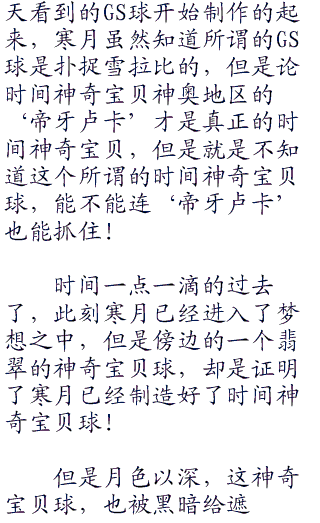 天看到的GS球开始制作的起
来，寒月虽然知道所谓的GS
球是扑捉雪拉比的，但是论
时间神奇宝贝神奥地区的
‘帝牙卢卡’才是真正的时
间神奇宝贝，但是就是不知
道这个所谓的时间神奇宝贝
球，能不能连‘帝牙卢卡’
也能抓住！
时间一点一滴的过去
了，此刻寒月已经进入了梦
想之中，但是傍边的一个翡
翠的神奇宝贝球，却是证明
了寒月已经制造好了时间神
奇宝贝球！
但是月色以深，这神奇
宝贝球，也被黑暗给遮